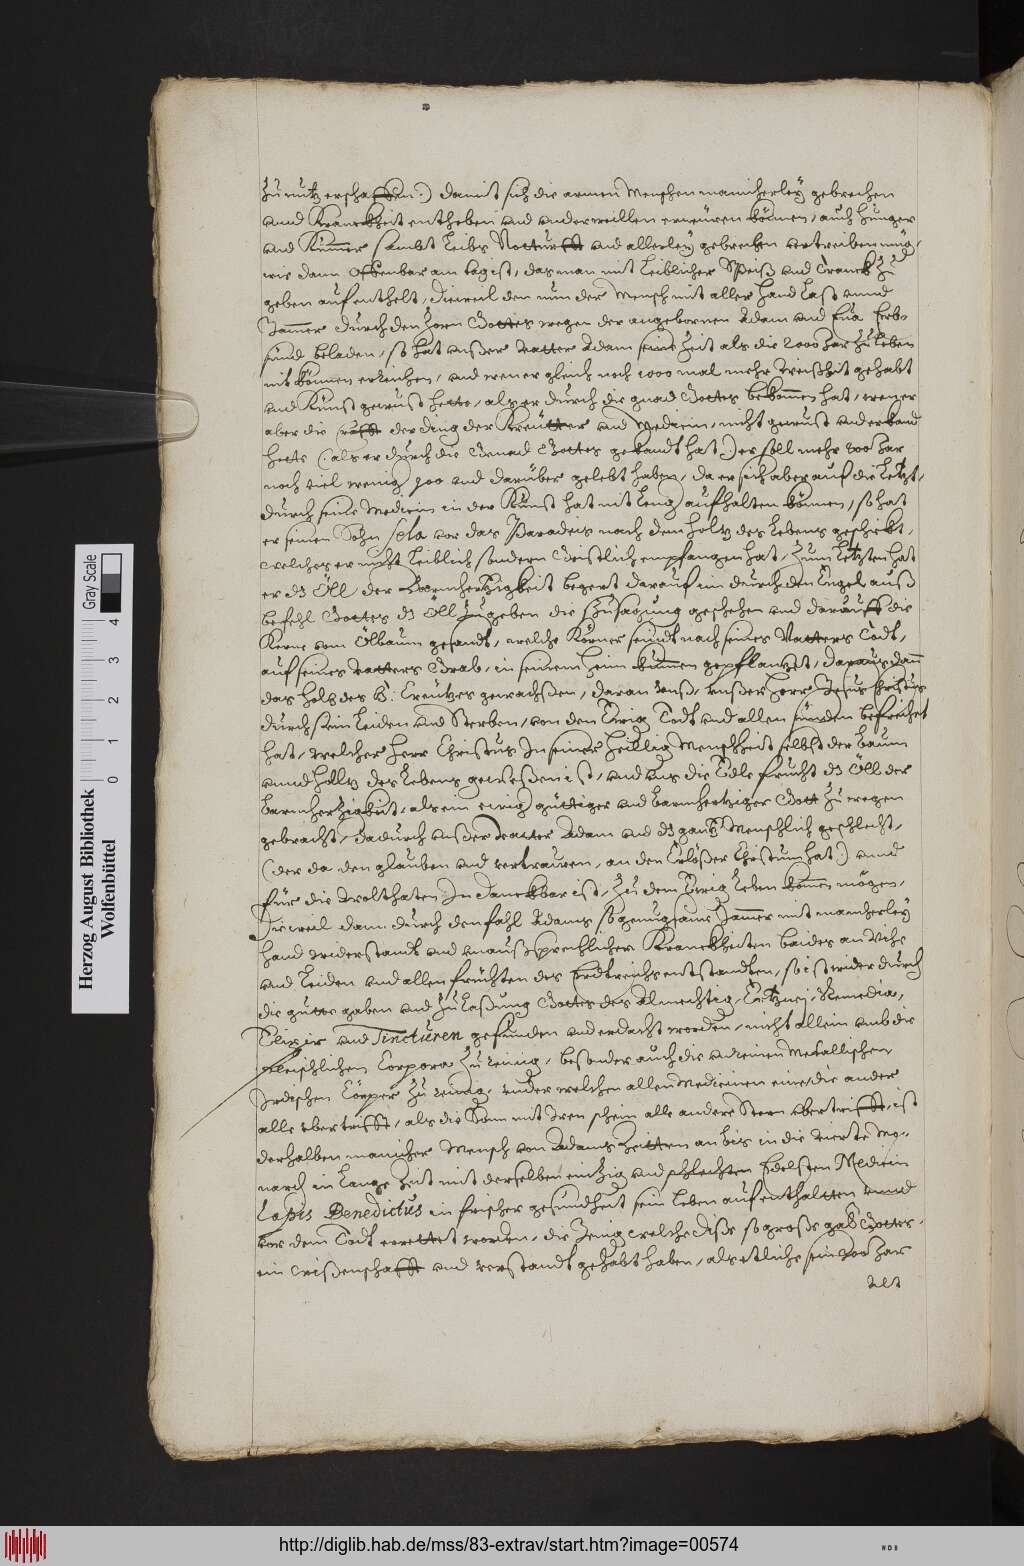 zu nutz erschaffen.) damit sich die armen Menschen mancherley gebrechen
unnd Kranckheit entheben und underweillen erneüren können, auch hunger
und Kummer sambt Leibs Notturfft und allerley gebrechen vertreiben mög,
wie dann offenbar am tag ist, das man mit Leiblicher Speiß und Tranck zu
geben auf enthelt, dieweil den nun der Mensch mit aller hand Last unnd
Jammer durch den Zorn Gottes wegen der angebornen Adam und Eua Erb
sünd beladen, so hat unßer vatter Adam seine Zeit als die 2000 Jar zu leben
nit können erreichen, und wen er gleich noch 1000 mal mehr Weißheit gehabt
und Kunst gewust hette, als er durch die gnad Gottes bekommen hat, wen er
aber die krafft der ding der Kreütter und Medicin, nicht gewust und erkand
hette (als er durch die Genad Gottes gekandt hat) er soll mehr 800 Jar
noch viel wenig 900 und darüber gelebt haben, da er sich aber auf die Letzt,
durch seine Medicin in der Kunst hat nit leng auf halten können, so hat
er seinen Sohn Seta vor das Paradeis nach dem holtz des Lebens geschickt,
welches er nicht Leiblich sondern Geistlich empfangen hat, zum Letzten hat
er ds Öll der Barmhertzigkeit begert darauf im durch den Engel auß
befehl Gottes ds Öll zu geben die Zusagung geschehen und darauff die
Kerne vom Ölbaum gesandt, welche Körner seindt nach seines Vatters Todt,
auf seines vatters Grab, in seinem heim kummen gepflantzet, daraus dann
das holtz des H: Creützes gewachßen, daran unß, unßer Herr Jesus Christus
durch sein Leiden und Sterben, von dem Ewig Todt und allen sünden befreihet
hat, welcher Herr Christus In seiner heillig Menschheit selbst der baum
unnd holtz des Lebens geweßen ist, und uns die Edle frucht ds Öll der
barmhertzigkeit, als ein ewig güttiger und barmhertziger Gott zu wegen
gebracht, dadurch unßer vatter Adam und ds gantz Menschlich geschlecht,
(der da den glauben und vertrauen, an den Erlößer Christum hat) unnd
für die wolthaten Im danckbar ist, zu dem Ewig Leben kommen mögen,
Dieweil dann durch den fahl Adams so genugsam Jammer mit mancherley
hand widerstandt und unaußsprechlicher Kranckheiten beides an Vihe
und Leiden und allen früchten des Erdtreichs entstandten, so ist wider durch
die gutte gaben und zu laßung Gottes des Almechtig, Ertzney, Remedia,
Elixir und Tincturen gefunden und erdacht worden, nicht allein umb die
fleischlichen Corpora zu reinig, besonder auch die unreinen Metallischen
Irdischen Cörper zu reinig, under welchen allen Medicinen eine, die ander
alle übertrifft, als die Sonn mit Iren schein alle andere Stern übertrifft, ist
derhalben mancher Mensch von Adams Zeitten an bis in die vierte Mo-
narch in lange Zeit mit derselben eintzig und schlechten Edelsten Medicin
Lapis Benedictus in frischer gesundheit sein Leben aufenthaltten unnd
vor dem Todt errettet worden, die Jenig welche dißr so große gab Gottes
ein wißenschafft und verstandt gehabt haben, als etliche sein 300 Jar
alt
Herzog August Bibliothek
Wolfenbüttel
Gray Scale
0 1 2 3 4
http://diglib.hab.de/mss/83-extrav/start.htm?image=00574